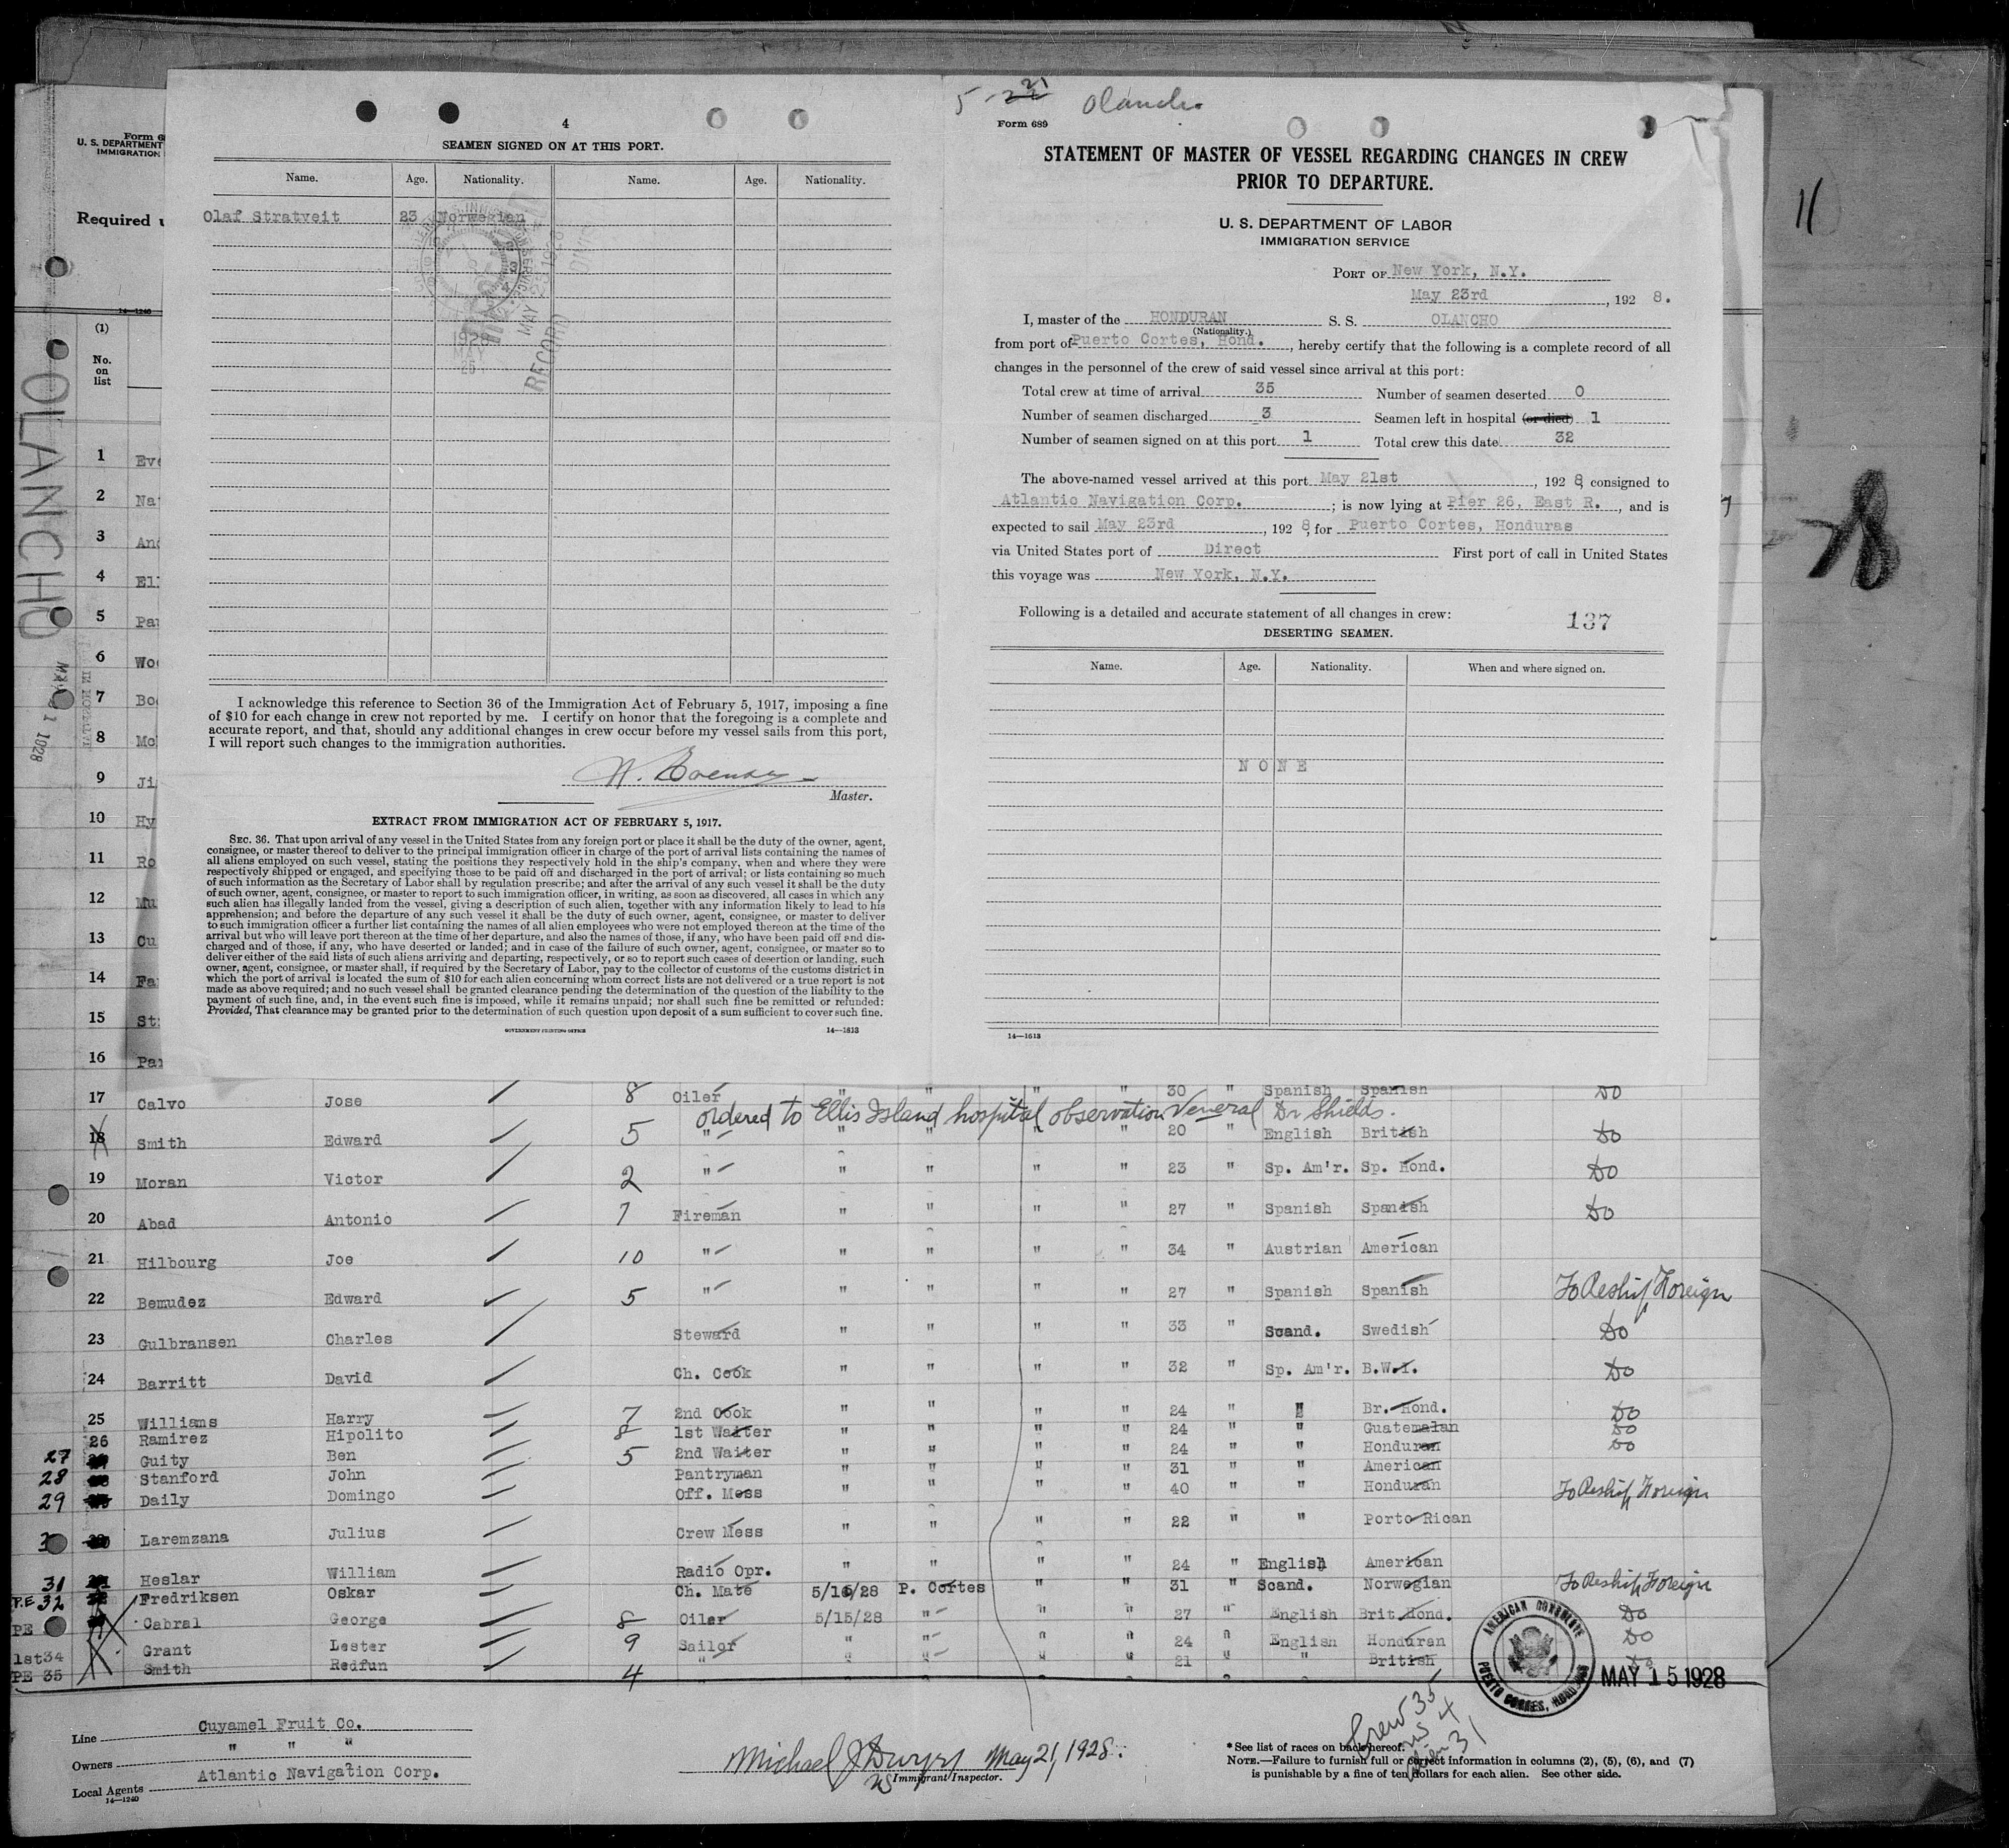 4
SEAMEN SIGNED ON AT THIS PORT.
Name. Age. Nationality. Name. Age. Nationality.
Olaf Stratveit 23 Norwegian
1928
MAY
25
RECORD
I acknowledge this reference to Section 36 of the Immigration Act of February 5, 1917, imposing a fine
of $10 for each change in crew not reported by me. I certify on honor that the foregoing is a complete and
accurate report, and that, should any additional changes in crew occur before my vessel sails from this port,
I will report such changes to the immigration authorities.
Master.
EXTRACT FROM IMMIGRATION ACT OF FEBRUARY 5, 1917.
SEC. 36. That upon arrival of any vessel in the United States from any foreign port or place it shall be the duty of the owner, agent,
consignee, or master thereof to deliver to the principal immigration officer in charge of the port of arrival lists containing the names of
all aliens employed on such vessel, stating the positions they respectively hold in the ship's company, when and where they were
respectively shipped or engaged, and specifying those to be paid off and discharged in the port of arrival; or lists containing so much
of such information as the Secretary of Labor shall by regulation prescribe; and after the arrival of any such vessel it shall be the duty
of such owner, agent, consignee, or master to report to such immigration officer, in writing, as soon as discovered, all cases in which any
such alien has illegally landed from the vessel, giving a description of such alien, together with any information likely to lead to his
apprehension; and before the departure of any such vessel it shall be the duty of such owner, agent, consignee, or master to deliver
to such immigration officer a further list containing the names of all alien employees who were not employed thereon at the time of the
arrival but who will leave port thereon at the time of her departure, and also the names of those, if any, who have been paid off and dis-
charged and of those, if any, who have deserted or landed; and in case of the failure of such owner, agent, consignee, or master so to
deliver either of the said lists of such aliens arriving and departing, respectively, or so to report such cases of desertion or landing, such
owner, agent, consignee, or master shall, if required by the Secretary of Labor, pay to the collector of customs of the customs district in
which the port of arrival is located the sum of $10 for each alien concerning whom correct lists are not delivered or a true report is not
made as above required; and no such vessel shall be granted clearance pending the determination of the question of the liability to the
payment of such fine, and, in the event such fine is imposed, while it remains unpaid; nor shall such fine be remitted or refunded:
Provided, That clearance may be granted prior to the determination of such question upon deposit of a sum sufficient to cover such fine.
GOVERNMENT PRINTING OFFICE 14—1613
5 21 Olancho
Form 689
STATEMENT OF MASTER OF VESSEL REGARDING CHANGES IN CREW
PRIOR TO DEPARTURE.
U. S. DEPARTMENT OF LABOR
IMMIGRATION SERVICE
PORT OF New York, N.Y.
May 23rd, 1928.
I, master of the HONDURAN S. S. OLANCHO
(Nationality.)
from port of Puerto Cortes, Hond., hereby certify that the following is a complete record of all
changes in the personnel of the crew of said vessel since arrival at this port:
Total crew at time of arrival 35 Number of seamen deserted 0
Number of seamen discharged 3 Seamen left in hospital (or died) 1
Number of seamen signed on at this port 1 Total crew this date 32
The above-named vessel arrived at this port May 21st, 1928, consigned to
Atlantic Navigation Corp.; is now lying at Pier 26, East R., and is
expected to sail May 23rd, 1928, for Puerto Cortes, Honduras
via United States port of Direct First port of call in United States
this voyage was New York, N.Y.
Following is a detailed and accurate statement of all changes in crew: 137
DESERTING SEAMEN.
Name. Age. Nationality. When and where signed on.
NONE
14—1613
11
78
Form 6
U. S. DEPARTMENT
IMMIGRATION
Required u
14—1240
(1)
No.
on
list
OLANCHO
1 Eve
2 Na
3 And
4 Ell
5 Pa
6 Wo
7 Bo
8 Mc
9 Ji
10 Hy
11 Ro
12 Mu
13 Cu
14 Fa
15 St
16 Pa
17 Calvo Jose 8 Oiler " " " " 30 " Spanish Spanish Do
ordered to Ellis Island hospital observation Veneral Dr Shields.
18 Smith Edward 5 " " " " " 20 " English British Do
19 Moran Victor 2 " " " " " 23 " Sp. Am'r. Sp. Hond. Do
20 Abad Antonio 7 Fireman " " " " 27 " Spanish Spanish Do
21 Hilbourg Joe 10 " " " " " 34 " Austrian American
22 Bemudez Edward 5 " " " " " 27 " Spanish Spanish To Reship Foreign
23 Gulbransen Charles Steward " " " " 33 " Scand. Swedish Do
24 Barritt David Ch. Cook " " " " 32 " Sp. Am'r. B.W.I. Do
25 Williams Harry 7 2nd Cook " " " " 24 " " Br. Hond. Do
26 Ramirez Hipolito 8 1st Waiter " " " " 24 " " Guatemalan Do
27 Guity Ben 5 2nd Waiter " " " " 24 " " Honduran Do
28 Stanford John Pantryman " " " " 31 " " American
29 Daily Domingo Off. Mess " " " " 40 " " Honduran To Reship Foreign
Laremzana Julius Crew Mess " " " " 22 " " Porto Rican
31 Heslar William Radio Opr. " " " " 24 " English American
P.E 32 Fredriksen Oskar Ch. Mate 5/16/28 P. Cortes " " 31 " Scand. Norwegian To Reship Foreign
PE Cabral George 8 Oiler 5/15/28 " " " 27 " English Brit Hond. Do
1st 34 Grant Lester 9 Sailor " " " " 24 " English Honduran Do
PE 35 Smith Redfun 4 " " " " " 21 " " British Do
AMERICAN CONSULATE
PUERTO CORTES, HONDURAS
MAY 15 1928
Line Cuyamel Fruit Co.
Owners " " "
Local Agents Atlantic Navigation Corp.
14—1240
Michael J Dwyer May 21, 1928.
Immigrant Inspector.
Crew 35
US 4
alien 31
* See list of races on back hereof.
NOTE.—Failure to furnish full or correct information in columns (2), (5), (6), and (7)
is punishable by a fine of ten dollars for each alien. See other side.